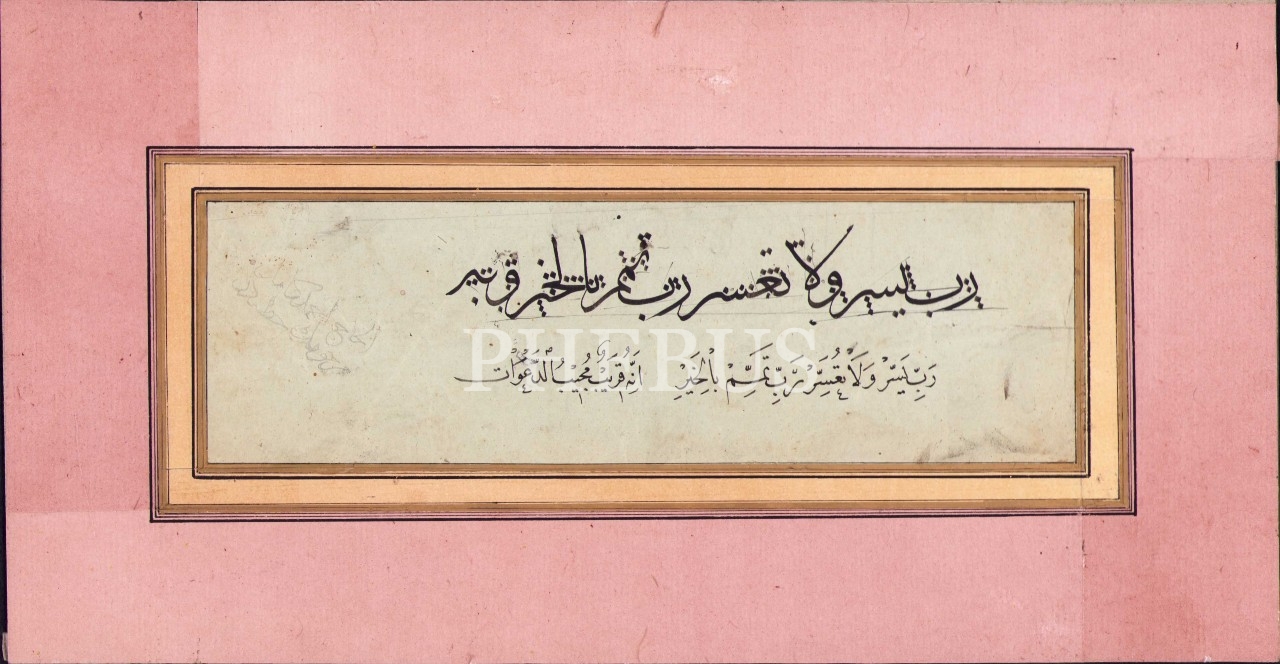 رب يسر ولا تعسر رب تمم بالخير
رَبِّ يَسِّرْ وَلَا تُعَسِّرْ رَبِّ تَمِّمْ بِالْخَيْرِ اِنَّهُ قَرِيبٌ مُجِيبُ الدَّعْوَاتْ
PHEBUS